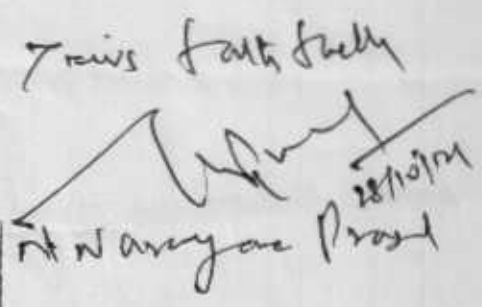 Yours faithfully
28/10/04
Narayan Prasad